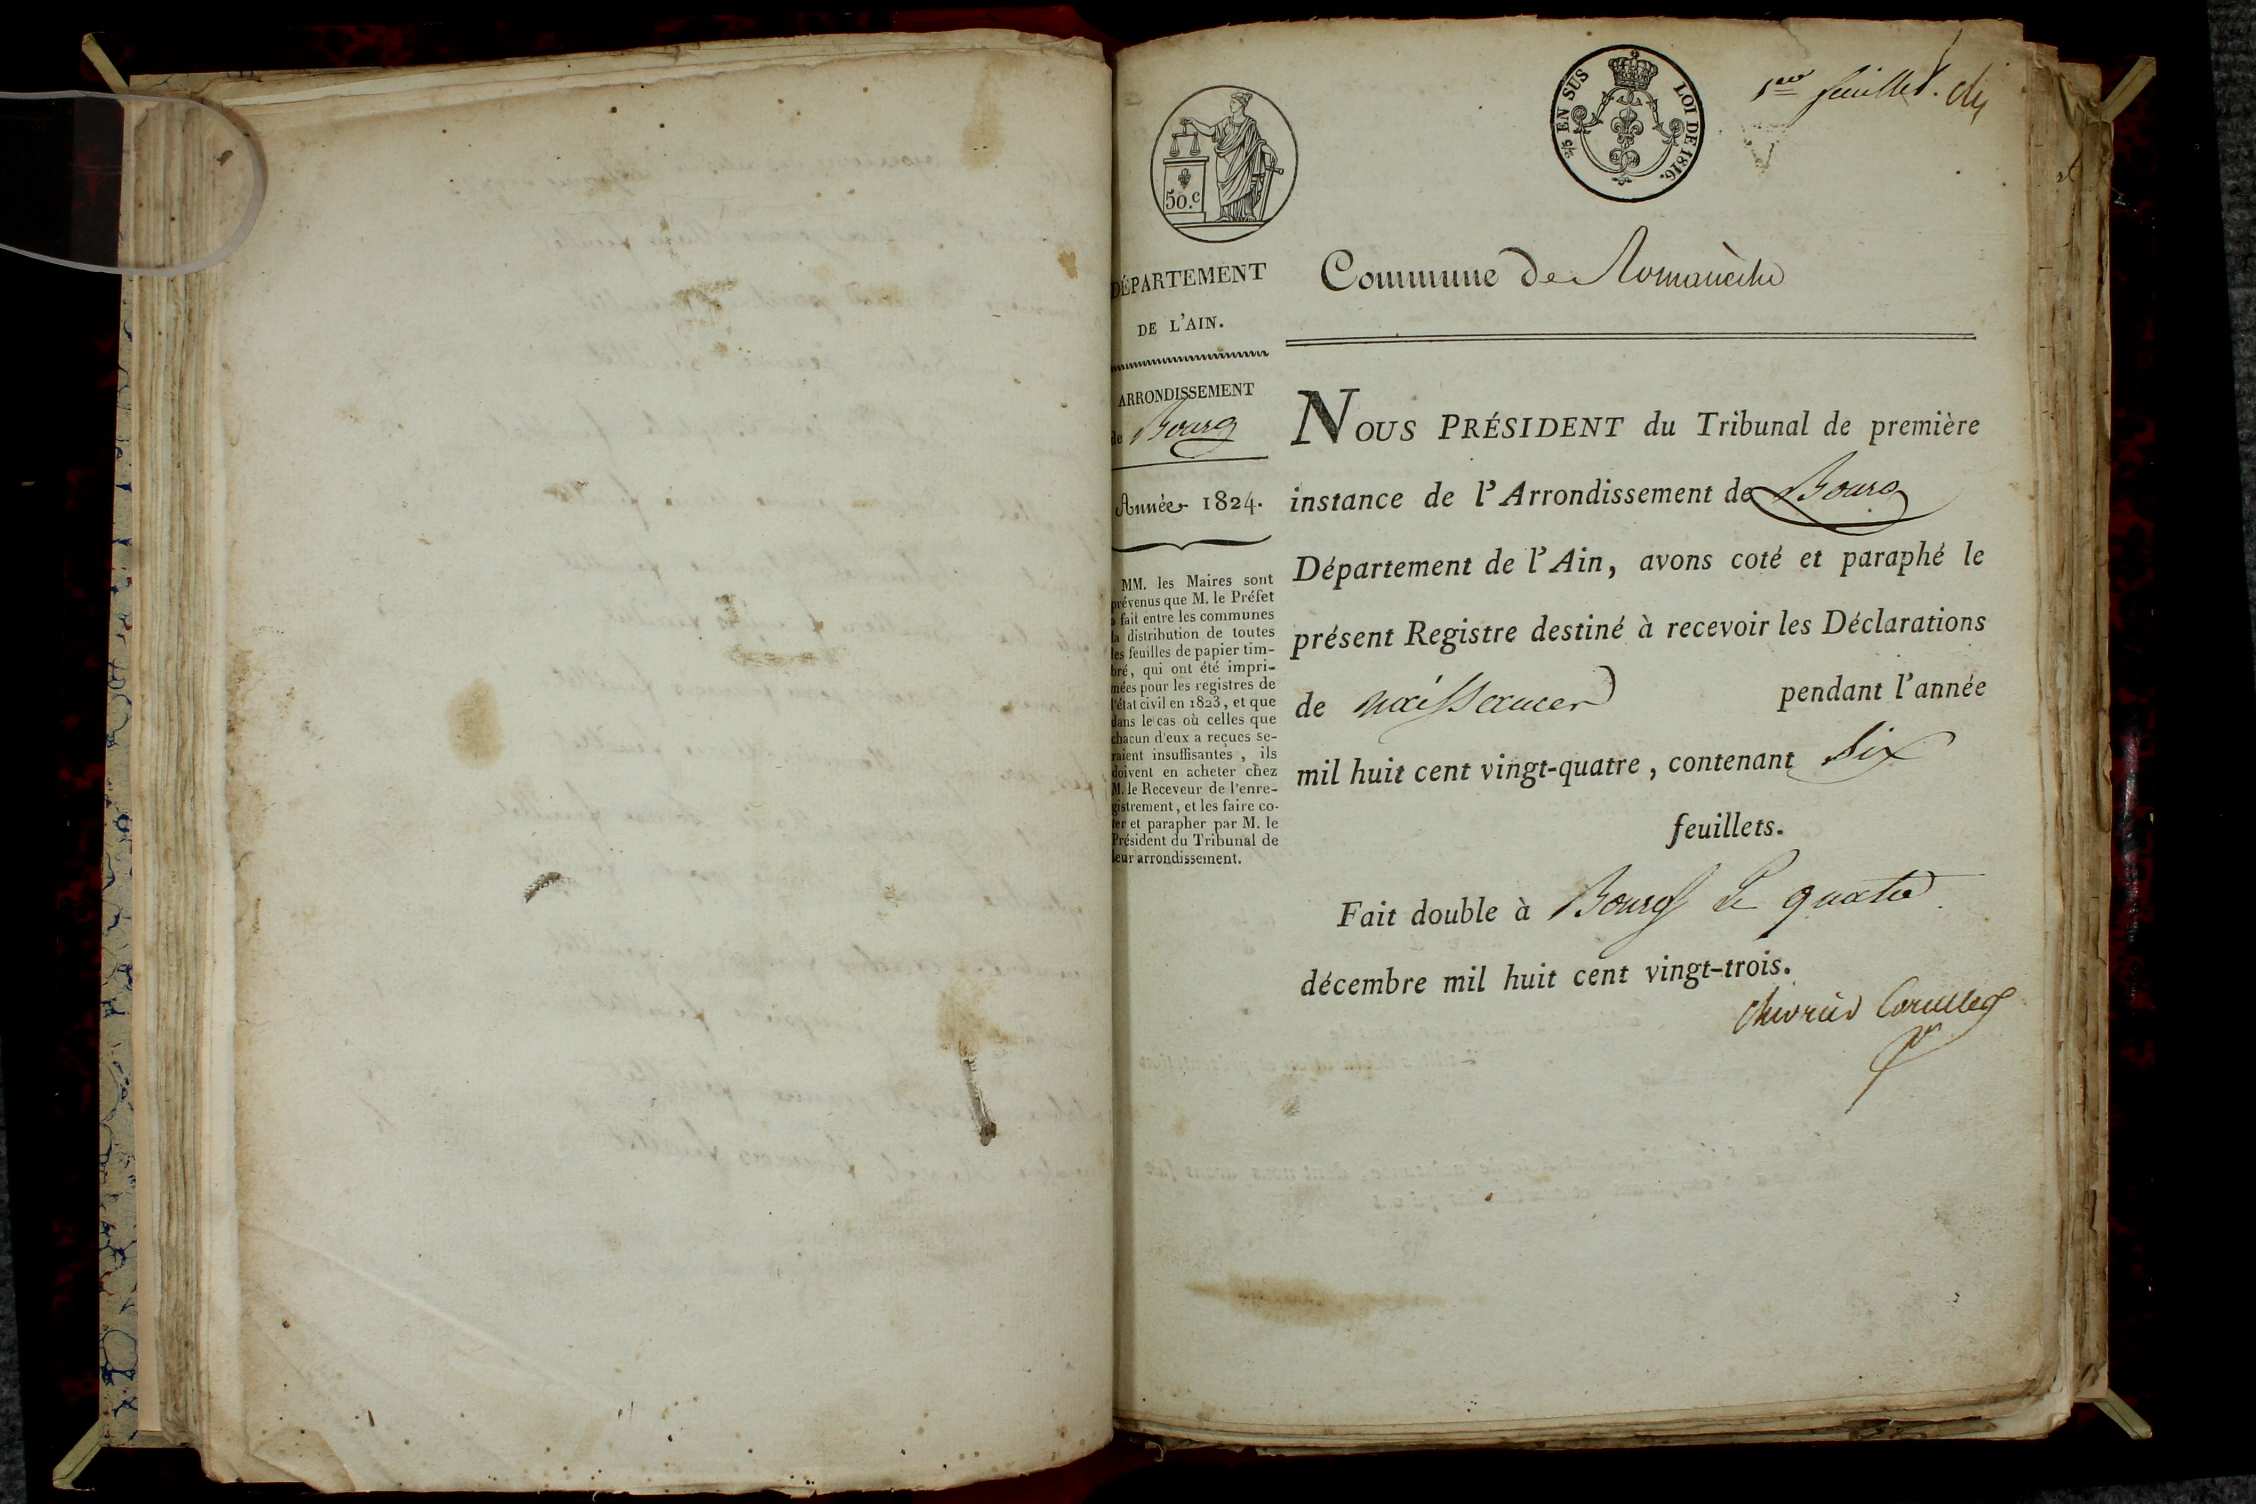 1er feuillet.
3/5 EN SUS
LOI DE 1816.
50.c
DÉPARTEMENT
DE L'AIN.
ARRONDISSEMENT
de Bourg
Année 1824.
MM. les Maires sont
prévenus que M. le Préfet
a fait entre les communes
la distribution de toutes
les feuilles de papier tim-
bré, qui ont été impri-
mées pour les registres de
l'état civil en 1823, et que
dans le cas où celles que
chacun d'eux a reçues se-
raient insuffisantes, ils
doivent en acheter chez
M. le Receveur de l'enre-
gistrement, et les faire co-
ter et parapher par M. le
Président du Tribunal de
leur arrondissement.
Commune de Romanèche
NOUS PRÉSIDENT du Tribunal de première
instance de l'Arrondissement de Bourg
Département de l'Ain, avons coté et paraphé le
présent Registre destiné à recevoir les Déclarations
de naissances pendant l'année
mil huit cent vingt-quatre, contenant six
feuillets.
Fait double à Bourg le quatre
décembre mil huit cent vingt-trois.